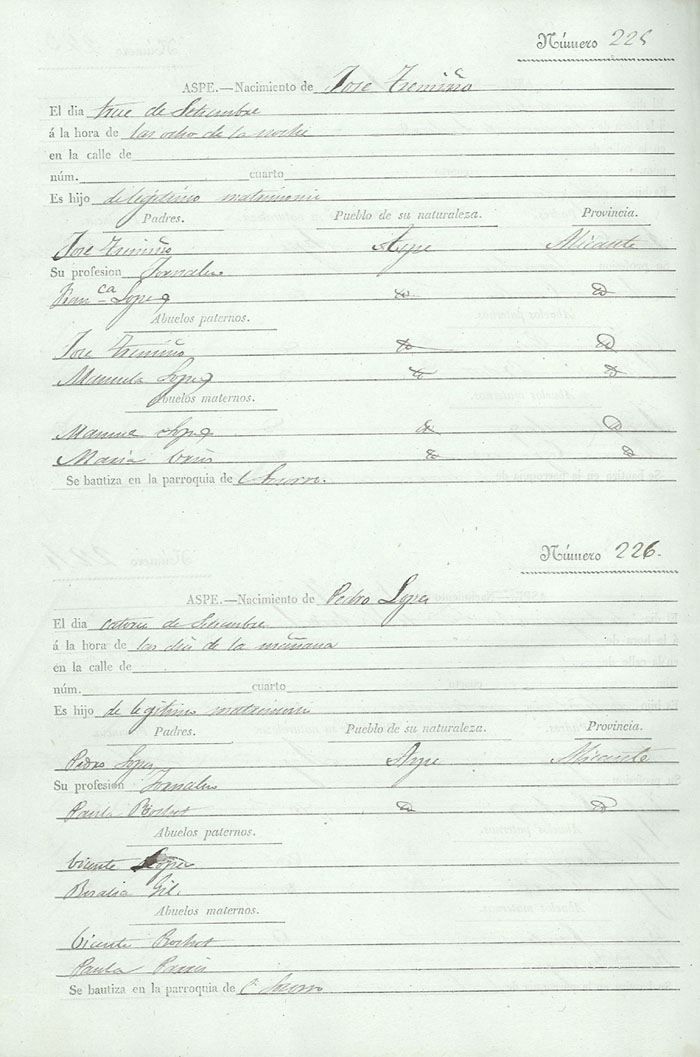 Número 225
ASPE.—Nacimiento de José Tremiño
El dia trece de Setiembre
á la hora de las ocho de la noche
en la calle de
núm. cuarto
Es hijo de legitimo matrimonio
Padres. Pueblo de su naturaleza. Provincia.
Jose Tremiño Aspe Alicante
Su profesion Jornalero
Franca Lopez do do
Abuelos paternos.
Jose Tremiño do do
Manuela Lopez do do
Abuelos maternos.
Manuel Lopez do do
Maria do do
Se bautiza en la parroquia de
Número 226.
ASPE.—Nacimiento de Pedro Lopez
El dia catorce de Setiembre
á la hora de las diez de la mañana
en la calle de
núm. cuarto
Es hijo de legitimo matrimonio
Padres. Pueblo de su naturaleza. Provincia.
Pedro Lopez Aspe Alicante
Su profesion Jornalero
Paula do do
Abuelos paternos.
Vicente Lopez
Rosalia Gil.
Abuelos maternos.
Vicente
Paula
Se bautiza en la parroquia de